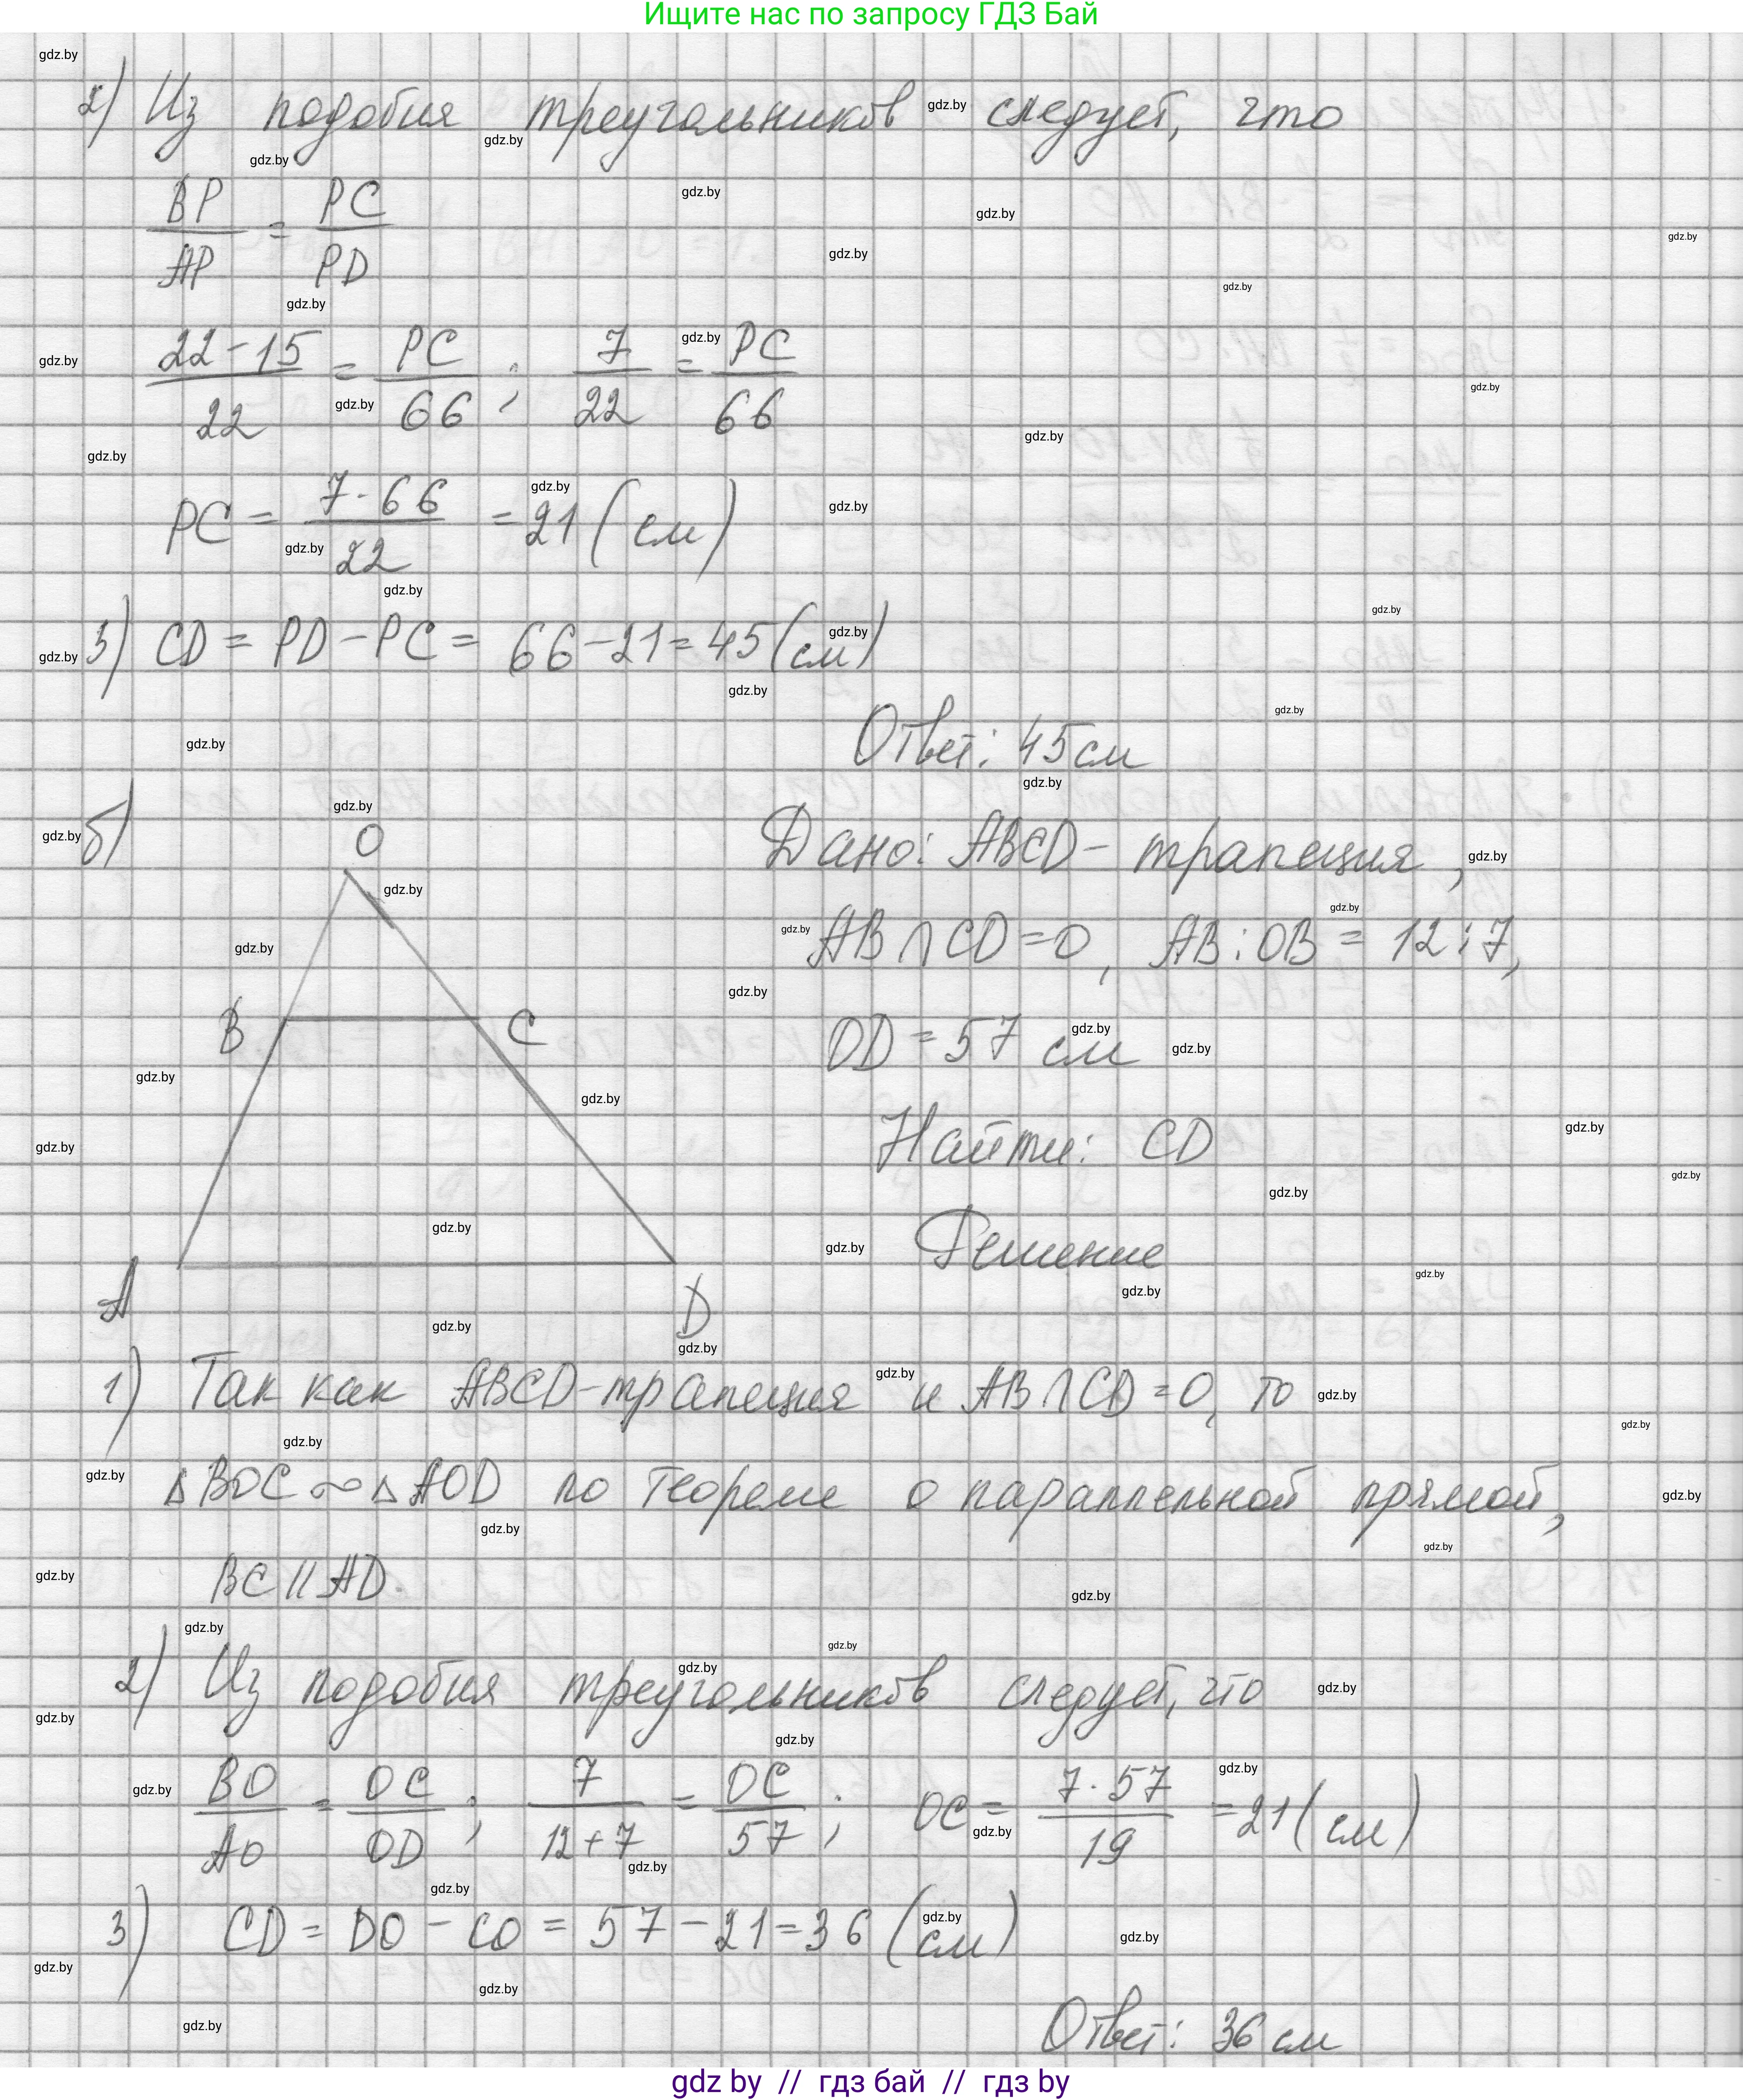 Ищите нас по запросу ГДЗ Бай
2) Из подобия треугольников следует, что
BP/AP = PC/PD
22-15/22 = PC/66 ; 7/22 = PC/66
PC = 7·66/22 = 21 (см)
3) CD = PD - PC = 66-21 = 45 (см)
Ответ: 45 см
б)
O
B
C
A
D
Дано: ABCD - трапеция,
AB ∩ CD = O, AB : OB = 12 : 7,
OD = 57 см
Найти: CD
Решение
1) Так как ABCD - трапеция и AB ∩ CD = O, то
△BOC ∾ △AOD по теореме о параллельной прямой,
BC || AD.
2) Из подобия треугольников следует, что
BO/AO = OC/OD ; 7/12+7 = OC/57 ; OC = 7·57/19 = 21 (см)
3) CD = DO - CO = 57 - 21 = 36 (см)
Ответ: 36 см
gdz by // гдз бай // гдз by